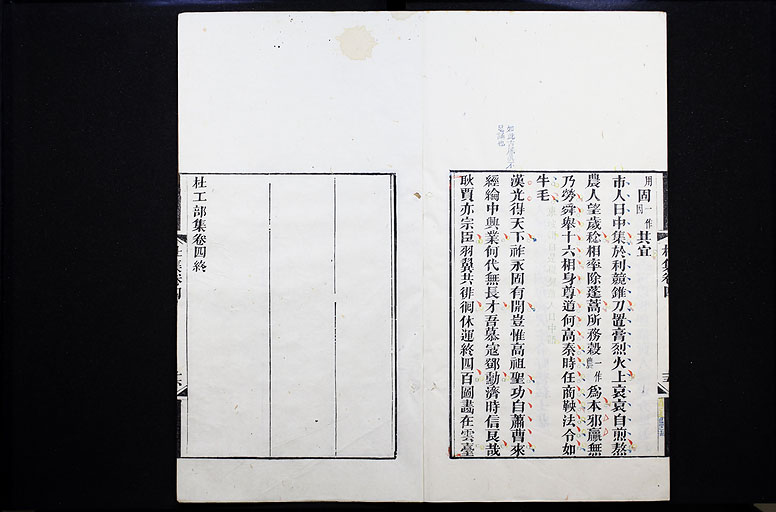 用固一作因其宜
市人日中集於利競錐刀置膏烈火上哀哀自煎熬
農人望歲稔相率除蓬蒿所務穀一作農為本邪贏無
乃勞舜舉十六相身尊道何高秦時任商鞅法令如
牛毛
漢光得天下祚永固有開豈惟高祖聖功自蕭曹來
經綸中興業何代無長才吾慕寇鄧勳濟時信良哉
耿賈亦宗臣羽翼共徘徊休運終四百圖畫在雲臺
杜工部集卷四終